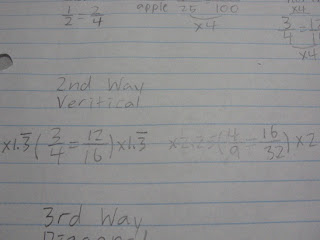 1/2 = 2/4
apple 25 100
x4
x4
3/4 = 12/
x4
2nd Way
Veritical
x1.3̅ ( 3/4 = 12/16 ) x1.3̅
x2.25 ( 4/9 = 16/32 ) x2
3rd Way